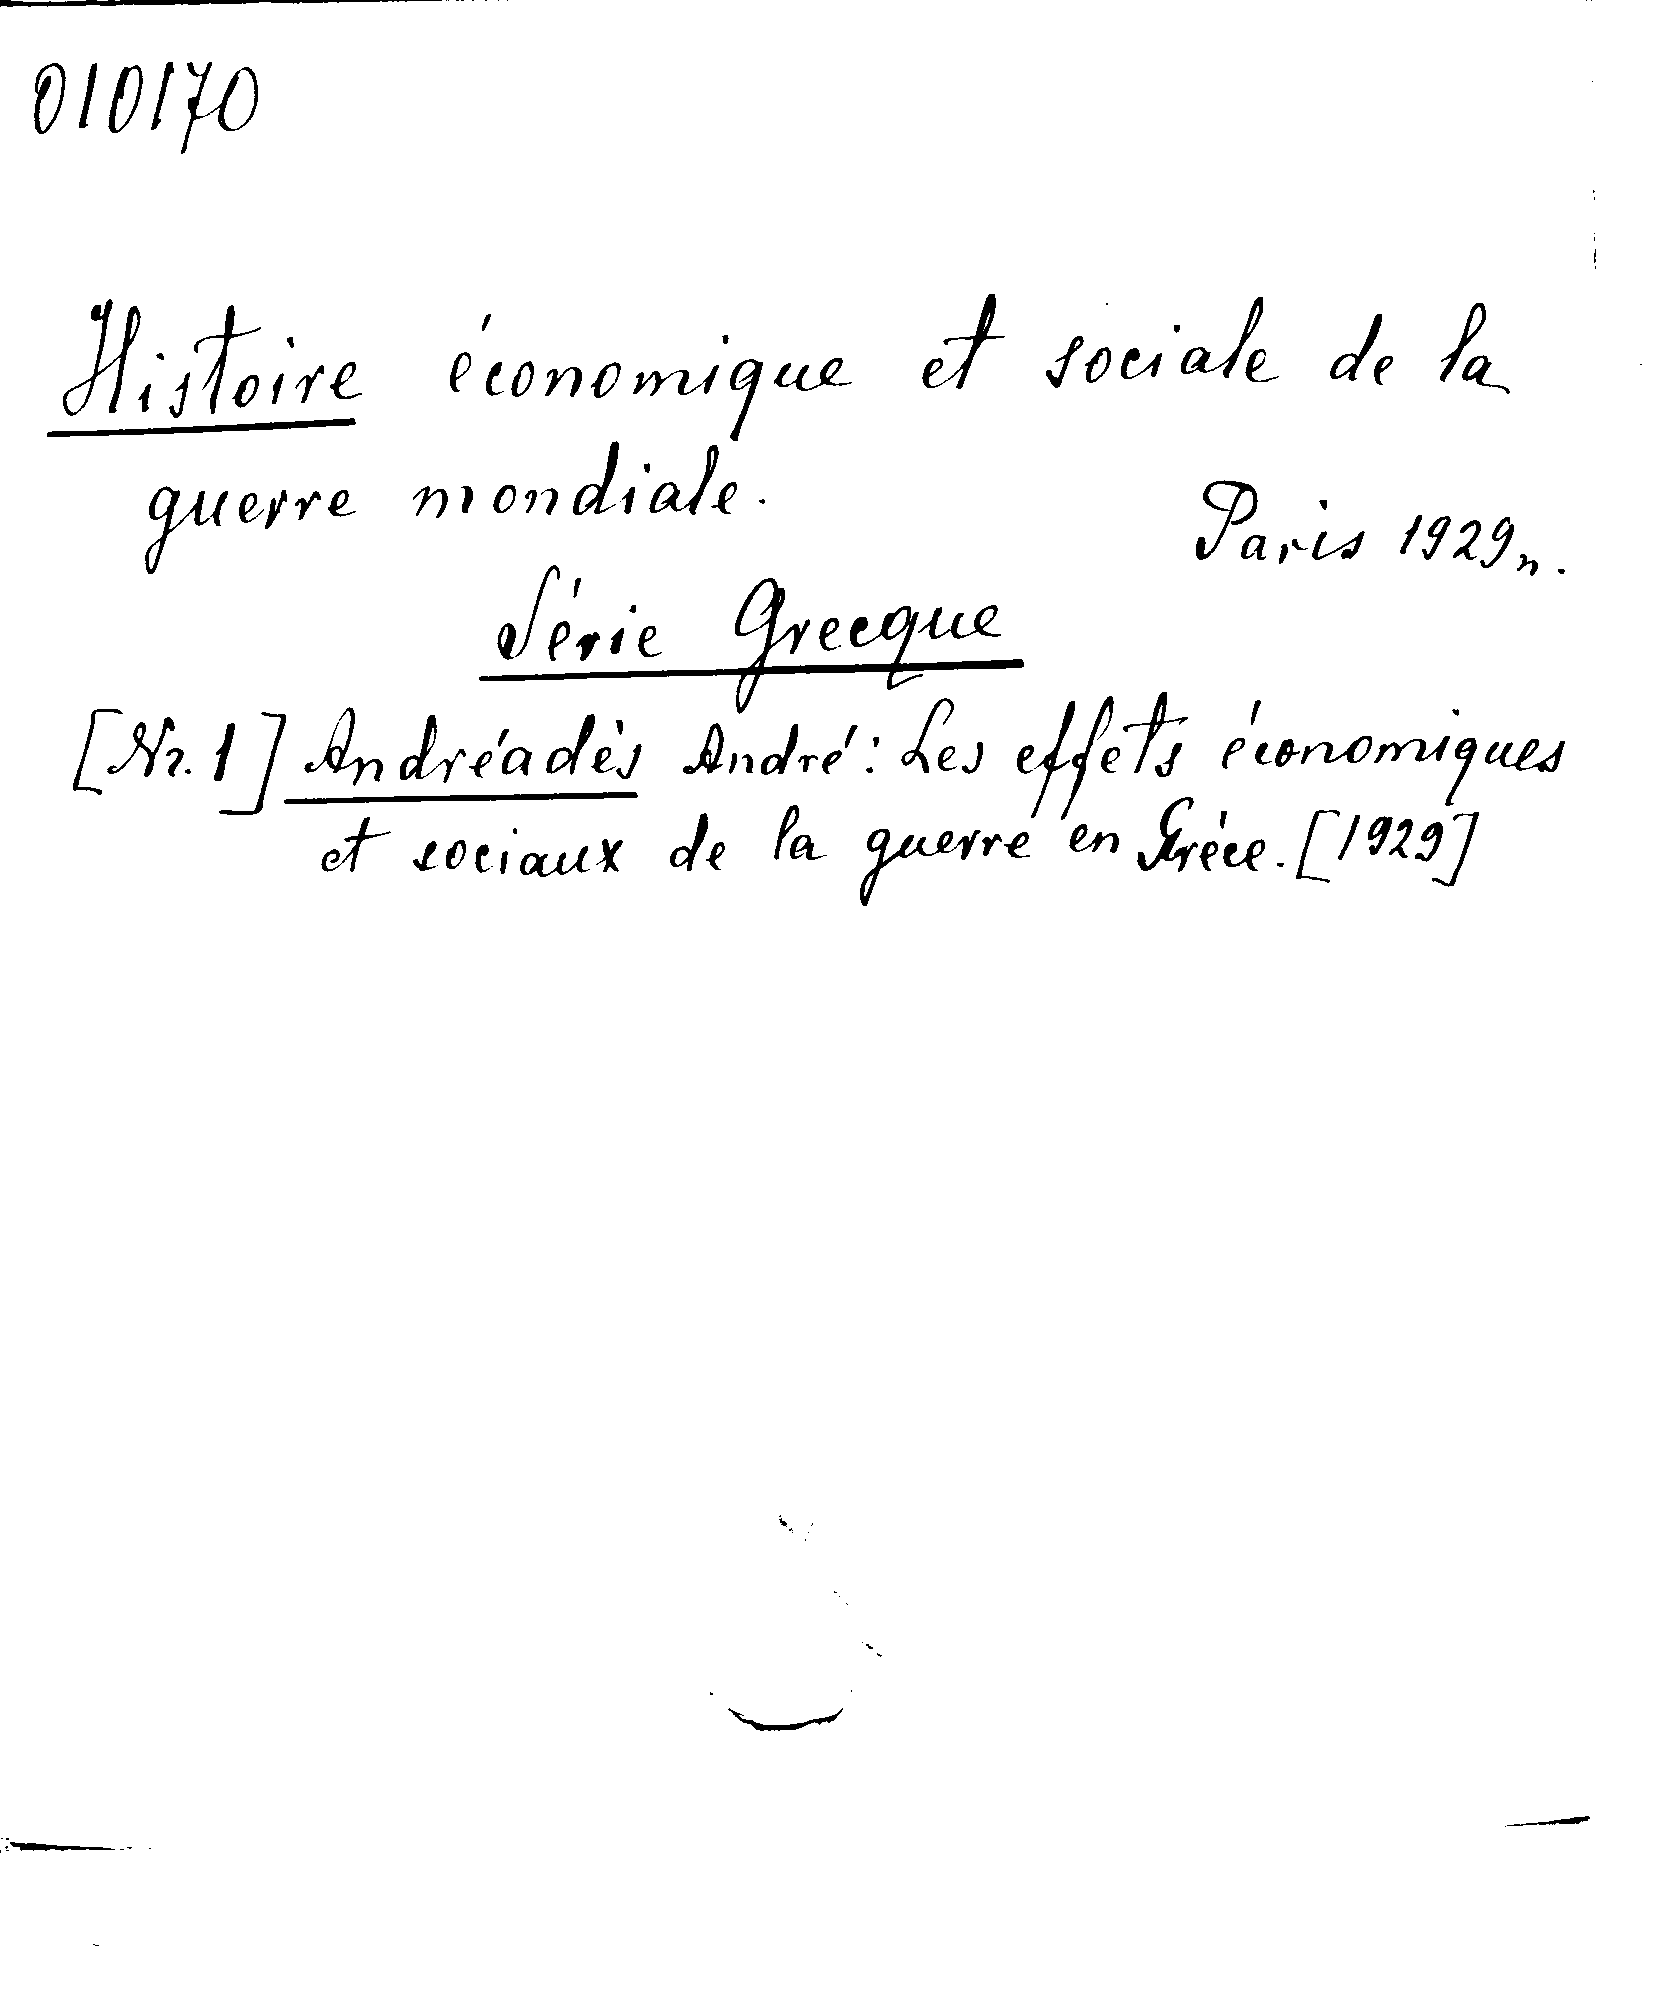 010170
Histoire économique et sociale de la
guerre mondiale.
Paris 1929n.
Série Grecque
[Nr. 1] Andréadès André: Les effets économiques
et sociaux de la guerre en Grèce. [1929]